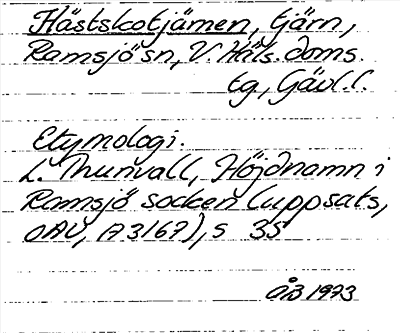 Hästskotjämen, tjärn,
Ramsjö sn, V. Häls. doms.
tg, Gävl. l.
Etymologi.
L. Thunvall, Höjdnamn i
Ramsjö socken (uppsats,
OAU, A 3167), s 35
ÅB 1973